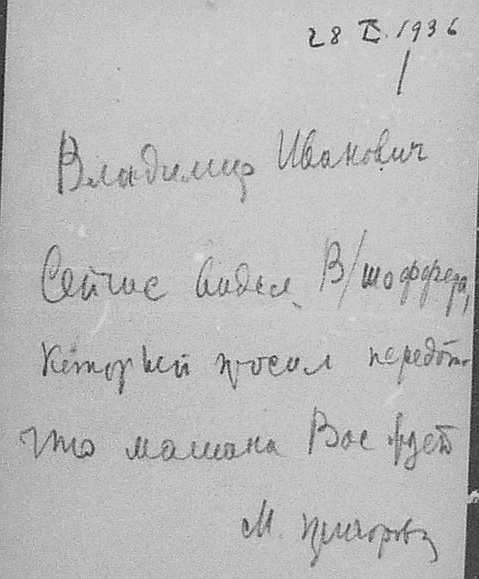 28 X. 1936
Владимир Иванович
Сейчас видел В/шоффера,
который просил передать
что машина Вас ждет
М.